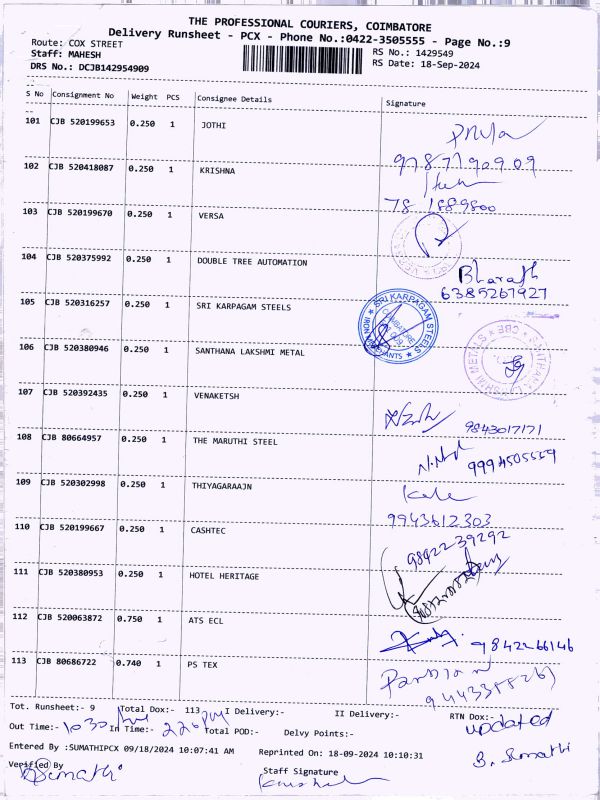 THE PROFESSIONAL COURIERS, COIMBATORE
Delivery Runsheet - PCX - Phone No.:0422-3505555 - Page No.:9
Route: COX STREET
Staff: MAHESH
DRS No.: DCJB142954909
RS No.: 1429549
RS Date: 18-Sep-2024
S No Consignment No Weight PCS Consignee Details Signature
101 CJB 520199653 0.250 1 JOTHI
Priya
9787790909
102 CJB 520418087 0.250 1 KRISHNA
78 1889800
103 CJB 520199670 0.250 1 VERSA
104 CJB 520375992 0.250 1 DOUBLE TREE AUTOMATION
Bharath
6385267927
105 CJB 520316257 0.250 1 SRI KARPAGAM STEELS
SRI KARPAGAM STEELS
106 CJB 520380946 0.250 1 SANTHANA LAKSHMI METAL
SANTHANA LAKSHMI METALS CBE
107 CJB 520392435 0.250 1 VENAKETSH
9843017171
108 CJB 80664957 0.250 1 THE MARUTHI STEEL
9994505559
109 CJB 520302998 0.250 1 THIYAGARAAJN
Kala
9943612303
110 CJB 520199667 0.250 1 CASHTEC
9892239292
111 CJB 520380953 0.250 1 HOTEL HERITAGE
112 CJB 520063872 0.750 1 ATS ECL
9842266146
113 CJB 80686722 0.740 1 PS TEX
Pandian
Tot. Runsheet:- 9 Total Dox:- 113 I Delivery:- II Delivery:- RTN Dox:-
updated
Out Time:- 1030 In Time:- 226 pm Total POD:- Delvy Points:-
Entered By :SUMATHIPCX 09/18/2024 10:07:41 AM Reprinted On: 18-09-2024 10:10:31
B. Sumathi
Verified By
B Sumathi
Staff Signature